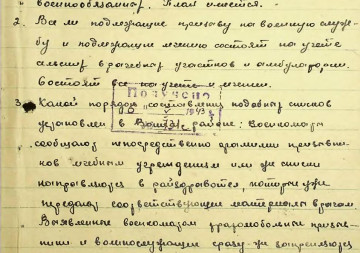 военнообязанных. План имеется.
2. Все ли подлежащие призыву на военную служ-
бу и подлежащие лечению состоят на учете
врачебных участков и амбулаторий.
Состоят все на учете и лечении.
Получено
3. Какой порядок составления подобных списков
1943 г.
установлен в районе: Военкоматы
сообщают непосредственно фамилии призывни-
ков лечебным учреждениям или же списки
направляются в райздравотдел, который уже
передает соответствующие материалы врачам.
Выявленные военкоматом призыв-
ники и военнослужащие сразу же направляются